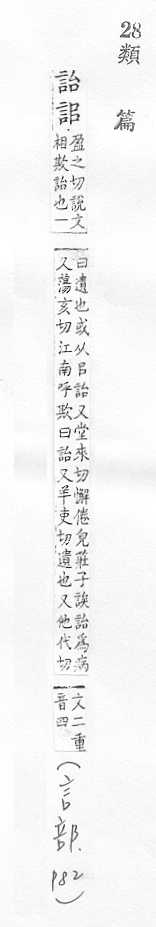 28
類
篇
詒 䛊 盈之切說文
相欺詒也一
曰遺也或从㠯詒又堂來切懈倦皃莊子誒詒爲病
又蕩亥切江南呼欺曰詒又羊吏切遺也又他代切
文二重
音四
(言部.
P82)